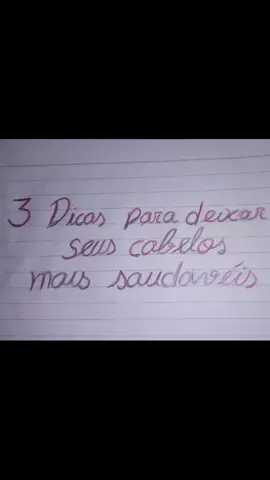 3 Dicas para deixar
seus cabelos
mais saudavéis